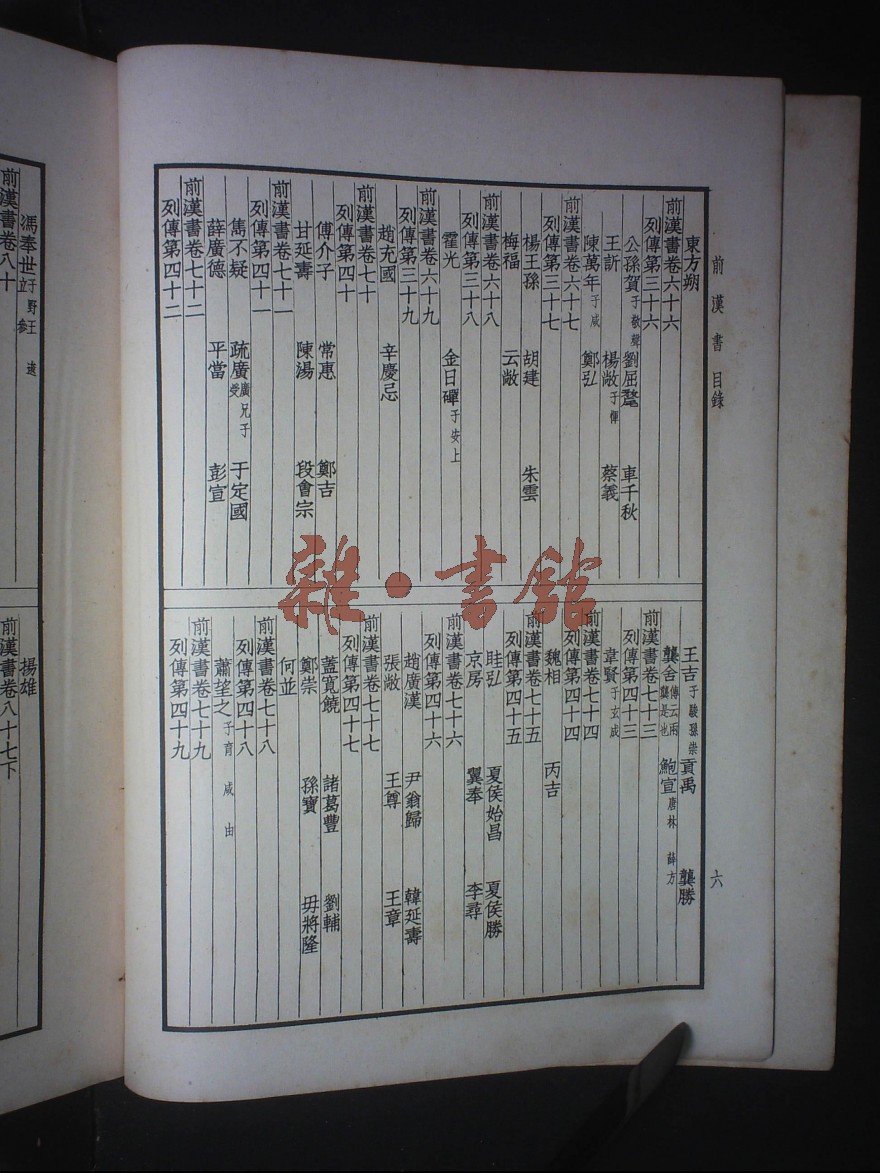 前漢書 目錄
六
東方朔
前漢書卷六十六
列傳第三十六
公孫賀子敬聲 劉屈氂 車千秋
王訢 楊敞子惲 蔡義
陳萬年子咸 鄭弘
前漢書卷六十七
列傳第三十七
楊王孫 胡建 朱雲
梅福 云敞
前漢書卷六十八
列傳第三十八
霍光 金日磾子安上
前漢書卷六十九
列傳第三十九
趙充國 辛慶忌
前漢書卷七十
列傳第四十
傅介子 常惠 鄭吉
甘延壽 陳湯 段會宗
前漢書卷七十一
列傳第四十一
雋不疑 疏廣廣兄子受 于定國
薛廣德 平當 彭宣
前漢書卷七十二
列傳第四十二
王吉子駿孫崇 貢禹 龔勝
龔舍傳云兩龔是也 鮑宣唐林 薛方
前漢書卷七十三
列傳第四十三
韋賢子玄成
前漢書卷七十四
列傳第四十四
魏相 丙吉
前漢書卷七十五
列傳第四十五
眭弘 夏侯始昌 夏侯勝
京房 翼奉 李尋
前漢書卷七十六
列傳第四十六
趙廣漢 尹翁歸 韓延壽
張敞 王尊 王章
前漢書卷七十七
列傳第四十七
蓋寬饒 諸葛豐 劉輔
鄭崇 孫寶 毋將隆
何並
前漢書卷七十八
列傳第四十八
蕭望之子育 咸 由
前漢書卷七十九
列傳第四十九
馮奉世子野王 逡 立 參
前漢書卷八十
楊雄
前漢書卷八十七下
雜·書館